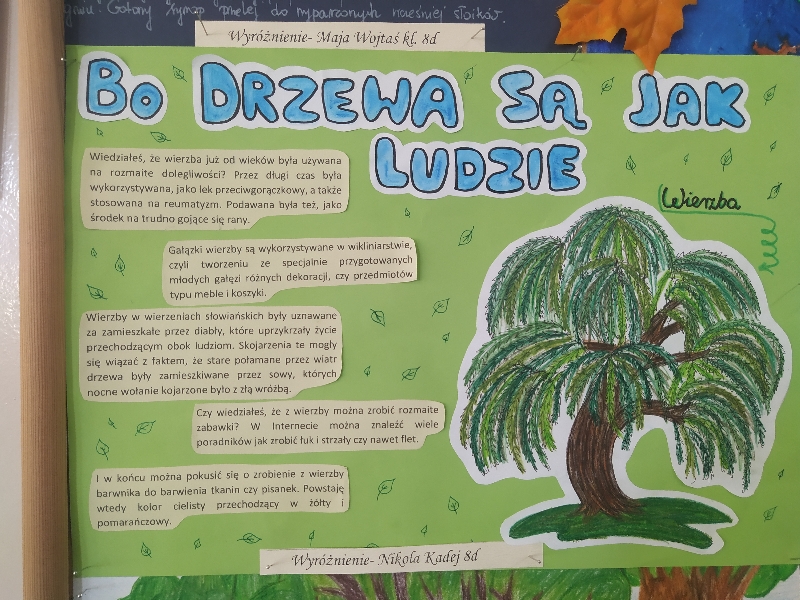 Gotowy syrop przelej do wyparzonych
słoików.
Wyróżnienie- Maja Wojtaś kl. 8d
Bo DRZEWA SĄ JAK
LUDZIE
Wiedziałeś, że wierzba już od wieków była używana
na rozmaite dolegliwości? Przez długi czas była
wykorzystywana, jako lek przeciwgorączkowy, a także
stosowana na reumatyzm. Podawana była też, jako
środek na trudno gojące się rany.
Wierzba
Gałązki wierzby są wykorzystywane w wikliniarstwie,
czyli tworzeniu ze specjalnie przygotowanych
młodych gałęzi różnych dekoracji, czy przedmiotów
typu meble i koszyki.
Wierzby w wierzeniach słowiańskich były uznawane
za zamieszkałe przez diabły, które uprzykrzały życie
przechodzącym obok ludziom. Skojarzenia te mogły
się wiązać z faktem, że stare połamane przez wiatr
drzewa były zamieszkiwane przez sowy, których
nocne wołanie kojarzone było z złą wróżbą.
Czy wiedziałeś, że z wierzby można zrobić rozmaite
zabawki? W Internecie można znaleźć wiele
poradników jak zrobić łuk i strzały czy nawet flet.
I w końcu można pokusić się o zrobienie z wierzby
barwnika do barwienia tkanin czy pisanek. Powstaję
wtedy kolor cielisty przechodzący w żółty i
pomarańczowy.
Wyróżnienie- Nikola Kadej 8d